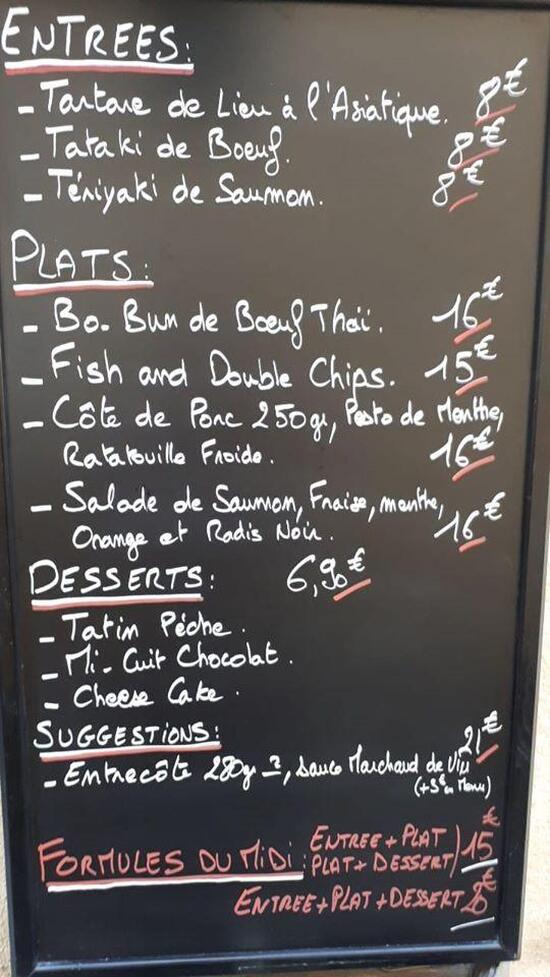 ENTREES:
- Tartare de Lieu à l'Asiatique. 8€
- Tataki de Boeuf. 8€
- Tériyaki de Saumon. 8€
PLATS:
- Bo-Bun de Boeuf Thaï. 16€
- Fish and Double Chips. 15€
- Côte de Porc 250gr, Pesto de Menthe,
Ratatouille Froide. 16€
- Salade de Saumon, Fraise, menthe,
Orange et Radis Noir. 16€
DESSERTS: 6,90€
- Tatin Pêche.
- Mi-Cuit Chocolat.
- Cheese Cake.
SUGGESTIONS: 21€
- Entrecôte 280gr, sauce Marchand de Vin
(+3€ en Menu)
FORMULES DU MIDI: ENTREE+PLAT
PLAT+DESSERT) 15€
ENTREE+PLAT+DESSERT 20€